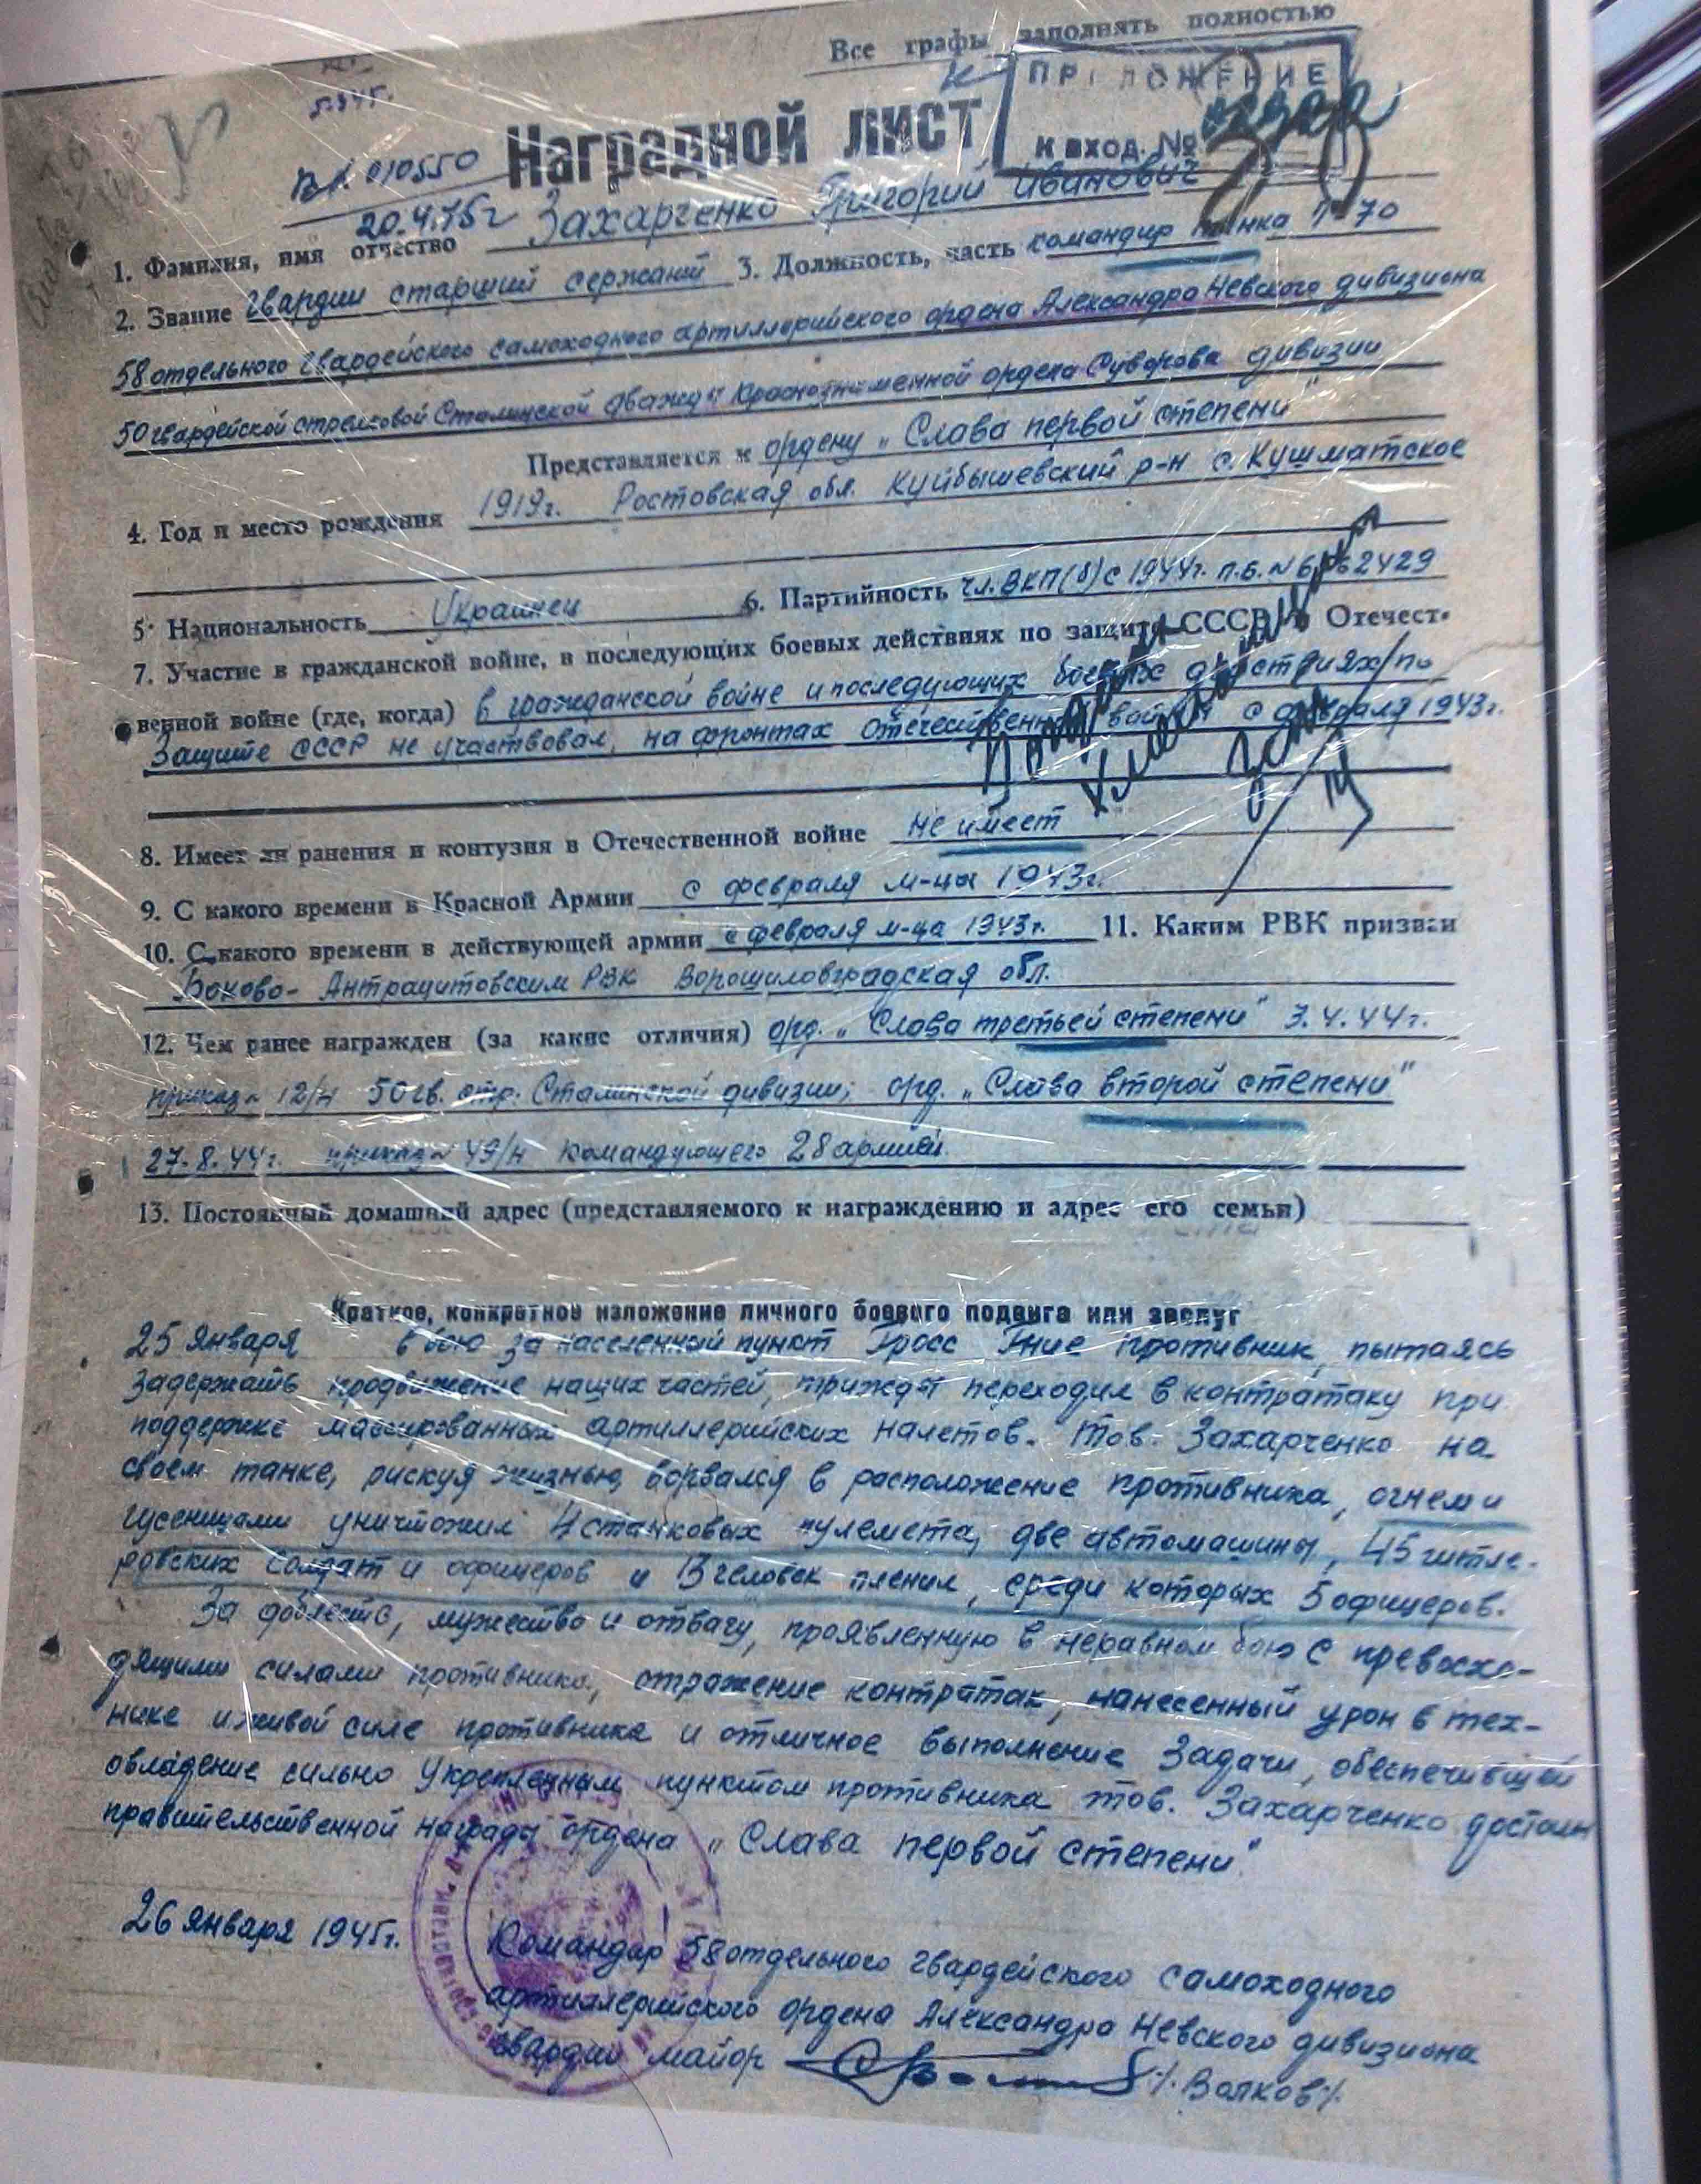 Все графы заполнять полностью
ПРИЛОЖЕНИЕ
Наградной лист
к вход. №
Вх. 010550
20.4.45г
1. Фамилия, имя отчество Захарченко Григорий Иванович
2. Звание гвардии старший сержант 3. Должность, часть командир танка Т-70
58 отдельного гвардейского самоходного артиллерийского ордена Александра Невского дивизиона
50 гвардейской стрелковой Сталинской дважды Краснознаменной ордена Суворова дивизии
Представляется к ордену „Слава первой степени"
4. Год и место рождения 1919г. Ростовская обл. Куйбышевский р-н с. Кушматское
5. Национальность Украинец 6. Партийность чл. ВКП(б) с 1944г. п.б. №
7. Участие в гражданской войне, в последующих боевых действиях по защите СССР и Отечест-
венной войне (где, когда) в гражданской войне и последующих боевых действиях по
защите СССР не участвовал, на фронтах отечественной войны с февраля 1943г.
8. Имеет ли ранения и контузия в Отечественной войне не имеет
9. С какого времени в Красной Армии с февраля м-ца 1943г.
10. С какого времени в действующей армии с февраля м-ца 1943г. 11. Каким РВК призван
Боково-Антрацитовским РВК Ворошиловградская обл.
12. Чем ранее награжден (за какие отличия) орд. „Слава третьей степени" 3.4.44г.
приказ № 12/н 50 гв. стр. Сталинской дивизии; орд. „Слава второй степени"
27.8.44г. приказ № 49/н командующего 28 армией.
13. Постоянный домашний адрес (представляемого к награждению и адрес его семьи)
Краткое, конкретное изложение личного боевого подвига или заслуг
25 января в бою за населенный пункт Гросс противник, пытаясь
задержать продвижение наших частей, трижды переходил в контратаку при
поддержке массированных артиллерийских налетов. Тов. Захарченко на
своем танке, рискуя жизнью, ворвался в расположение противника, огнем и
гусеницами уничтожил 4 станковых пулемета, две автомашины, 45 гитле-
ровских солдат и офицеров и 13 человек пленил, среди которых 5 офицеров.
За доблесть, мужество и отвагу, проявленную в неравном бою с превосхо-
дящими силами противника, отражение контратак, нанесенный урон в тех-
нике и живой силе противника и отличное выполнение задачи, обеспечившей
овладение сильно укрепленным пунктом противника тов. Захарченко достоин
правительственной награды ордена „Слава первой степени".
26 января 1945г.
Командир 58 отдельного гвардейского самоходного
артиллерийского ордена Александра Невского дивизиона
гвардии майор /Волков/